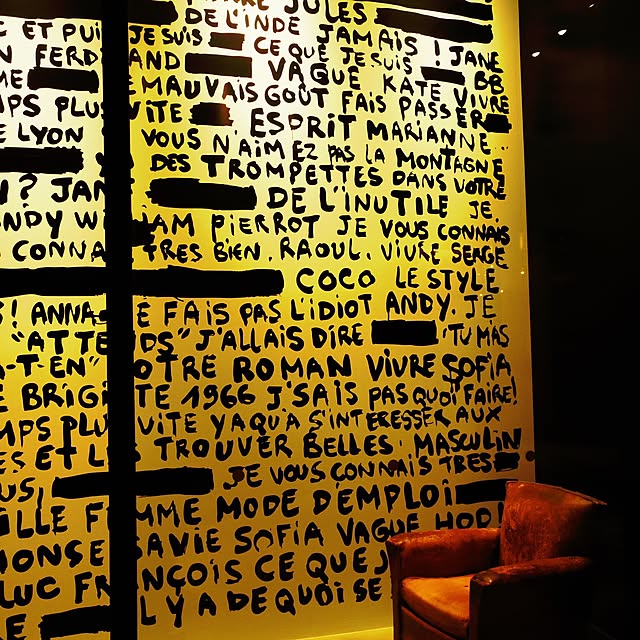 JULES
DE L'INDE JAMAIS! JANE
C ET PUI JE SUIS CE QUE JE SUIS BB
N FERD AND VAGUE KATE VIVRE
ME MAUVAIS GOÛT FAIS PASSER
MPS PLUS VITE ESPRIT MARIANNE
E LYON VOUS N'AIMEZ PAS LA MONTAGNE
DES TROMPETTES DANS VOTRE
? JAN DE L'INUTILE JE
NDY W IAM PIERROT JE VOUS CONNAIS
CONNA TRES BIEN. RAOUL. VIVRE SERGE
COCO LE STYLE
! ANNA E FAIS PAS L'IDIOT ANDY. JE
"ATTE DS" J'ALLAIS DIRE 'TU M'AS
-T-EN" OTRE ROMAN VIVRE SOFIA
E BRIGI TE 1966 J'SAIS PAS QUOI FAIRE!
MPS PLU VITE YA QU'A S'INTERESSER AUX
ES ET L TROUVER BELLES. MASCULIN
US, JE VOUS CONNAIS TRES
ILLE F MME MODE D'EMPLOI
ONSE SAVIE SOFIA VAGUE
LUC FR NÇOIS CE QUE J
E L Y A DE QUOI SE